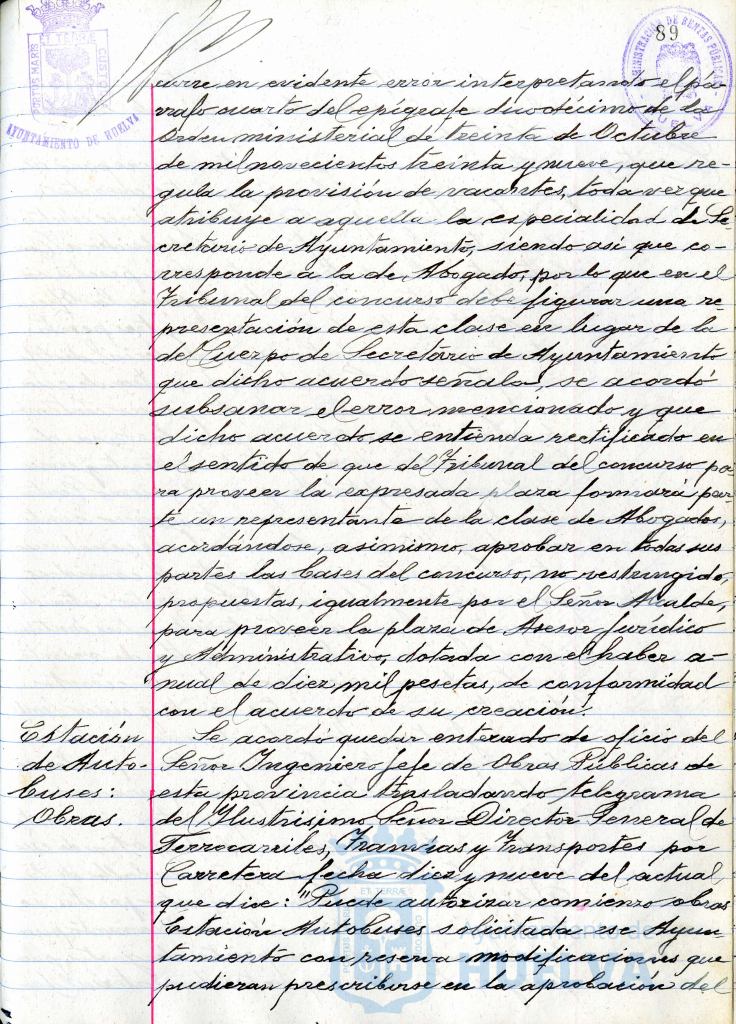 89
PORTUS MARIS
ET TERRÆ
CUSTODIA
AYUNTAMIENTO DE HUELVA
ADMINISTRACIÓN DE RENTAS PÚBLICAS
HUELVA
curre en evidente error interpretando el pá-
rrafo cuarto del epígrafe duodécimo de la
Orden ministerial de treinta de Octubre
de mil novecientos treinta y nueve, que re-
gula la provisión de vacantes, toda vez que
atribuye a aquella la especialidad de Se-
cretario de Ayuntamiento, siendo así que co-
rresponde a la de Abogado, por lo que en el
Tribunal del concurso debe figurar una re-
presentación de esta clase en lugar de la
del Cuerpo de Secretario de Ayuntamiento
que dicho acuerdo señala, se acordó
subsanar el error mencionado y que
dicho acuerdo se entienda rectificado en
el sentido de que del Tribunal del concurso pa-
ra proveer la expresada plaza formará par-
te un representante de la clase de Abogados,
acordándose, asimismo, aprobar en todas sus
partes las bases del concurso, no restringido,
propuestas, igualmente por el Señor Alcalde,
para proveer la plaza de Asesor Jurídico
y Administrativo, dotada con el haber a-
nual de diez mil pesetas, de conformidad
con el acuerdo de su creación.
Estación
de Auto-
buses:
Obras.
Se acordó quedar enterado de oficio del
Señor Ingeniero Jefe de Obras Públicas de
esta provincia trasladando telegrama
del Ilustrísimo Señor Director General de
Ferrocarriles, Tranvías y Transportes por
Carretera fecha diez y nueve del actual
que dice: "Puede autorizar comienzo obras
Estación Autobuses solicitada ese Ayun-
tamiento con reserva modificaciones que
pudieran prescribirse en la aprobación del
ET TERRÆ
PORTUS MARIS
CUSTODIA
Ayuntamiento de
HUELVA